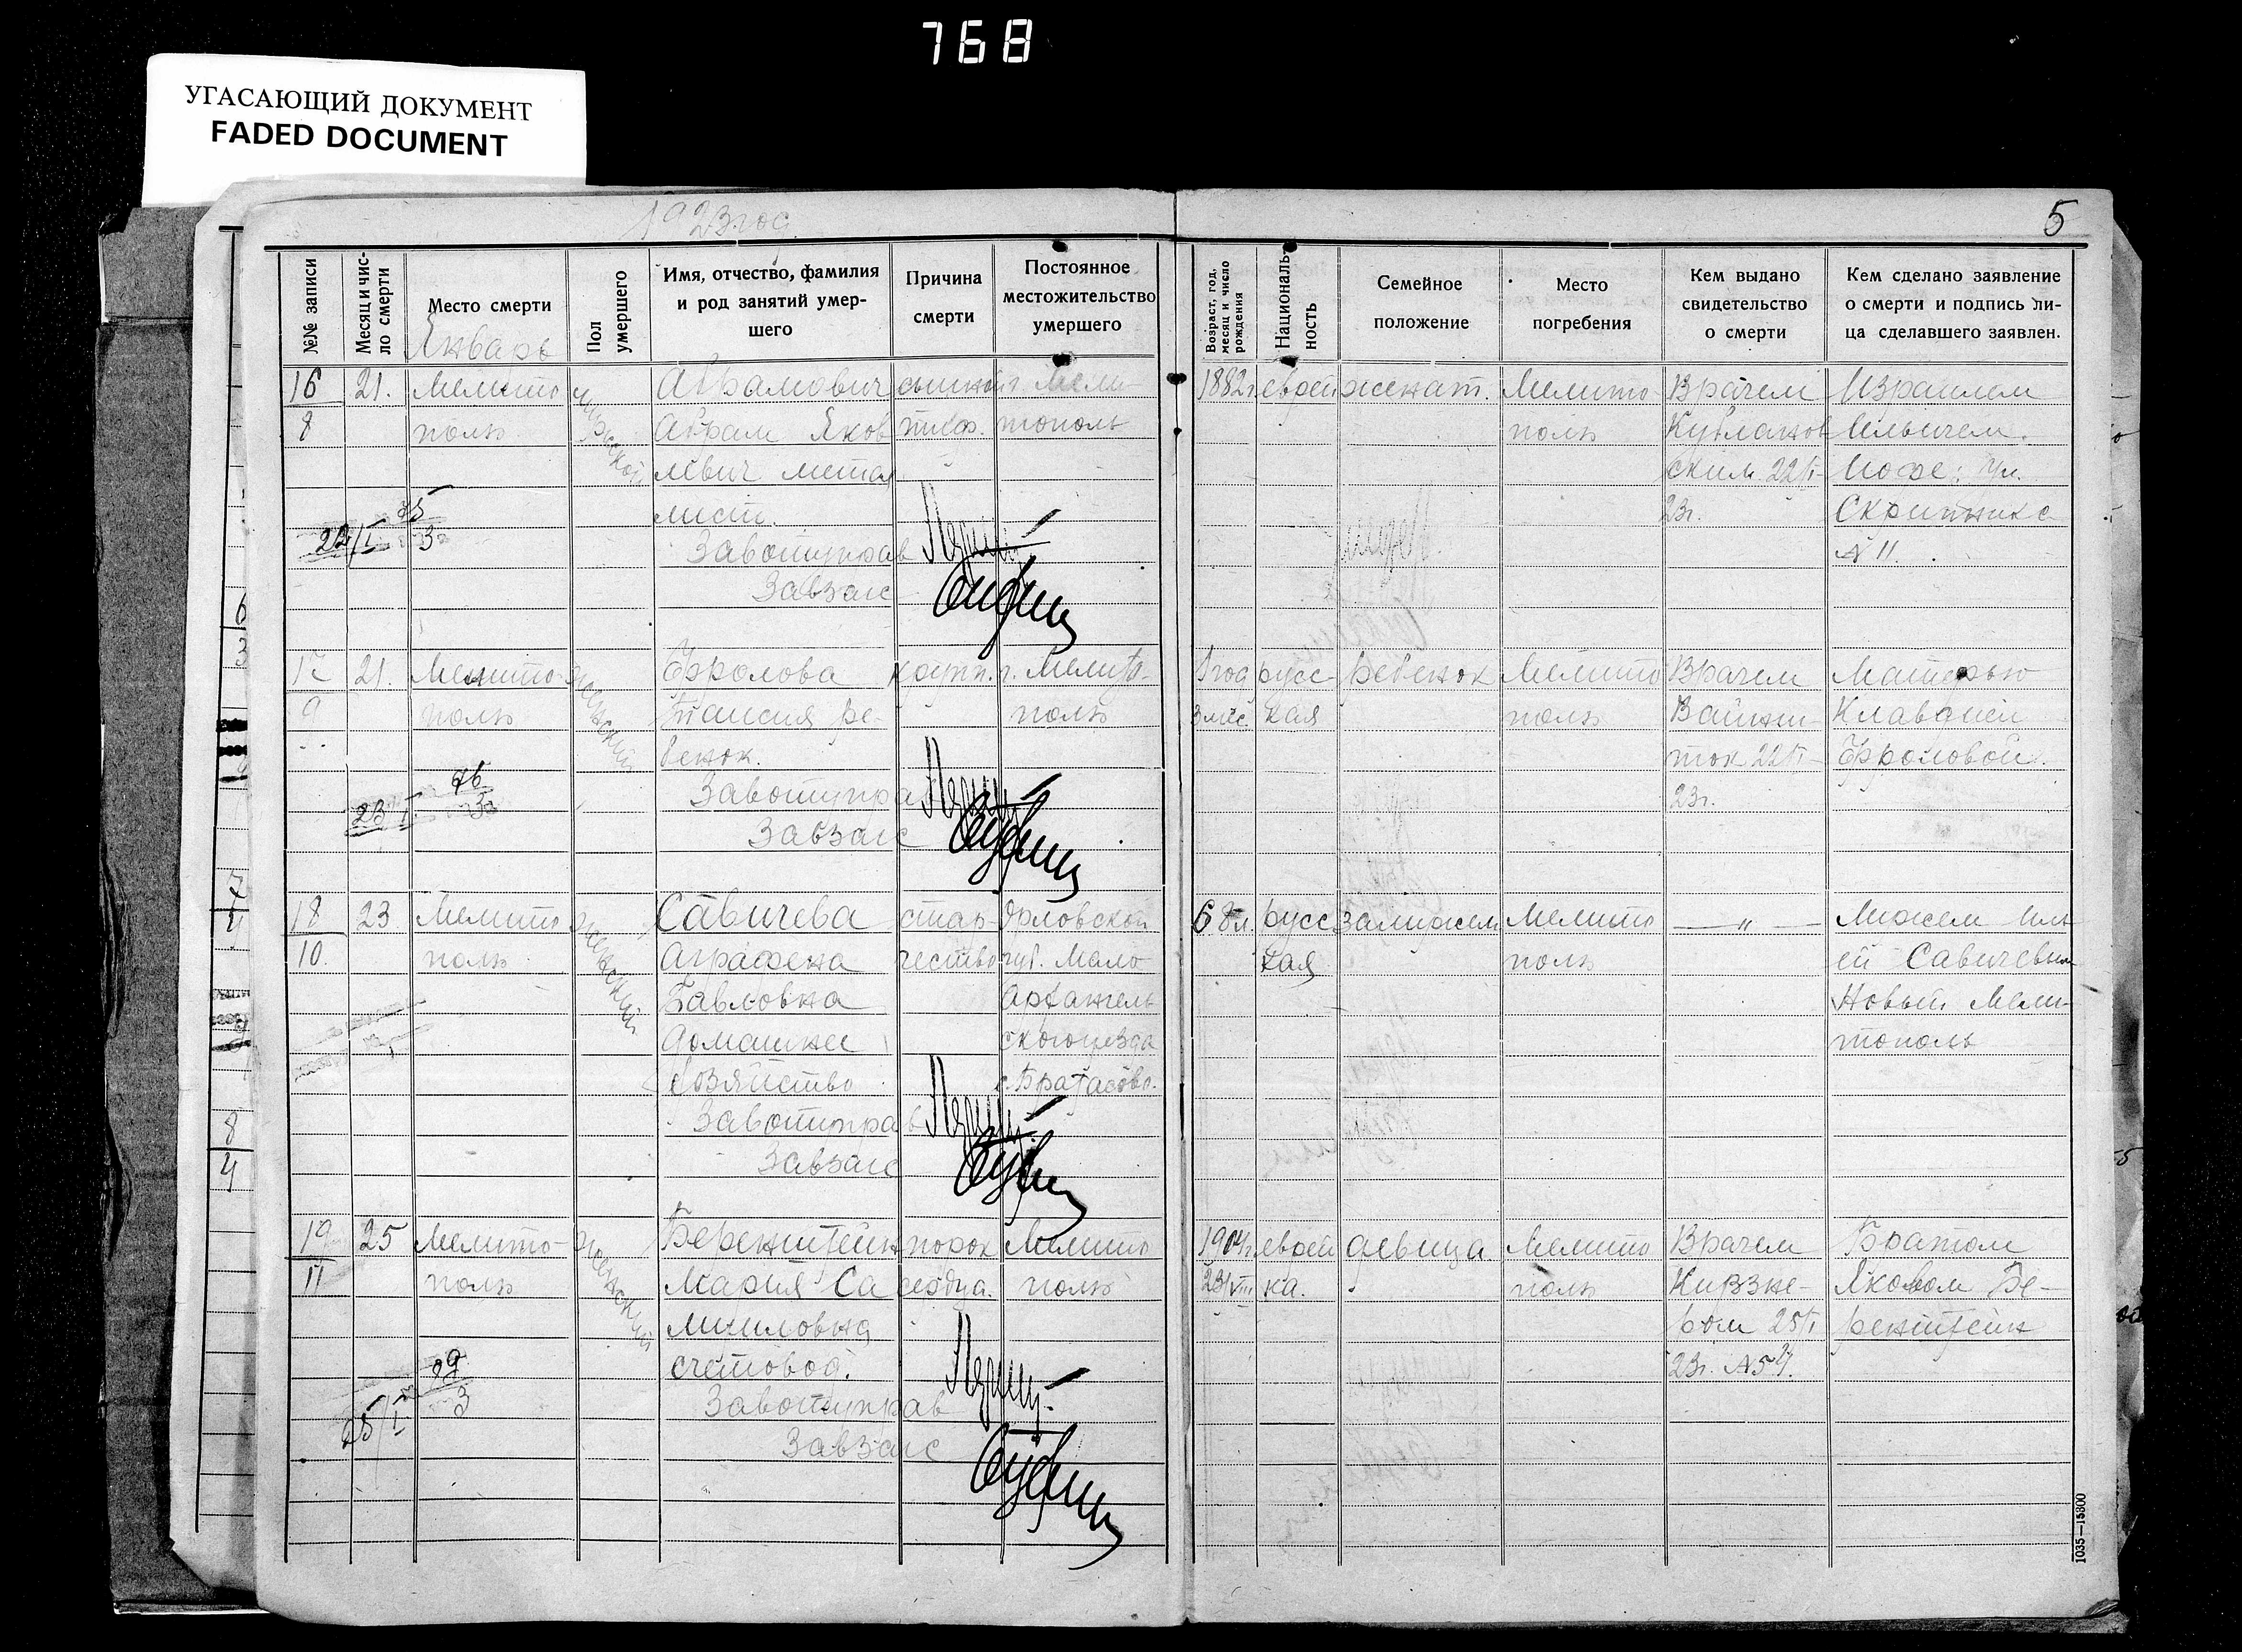 768
УГАСАЮЩИЙ ДОКУМЕНТ
FADED DOCUMENT
1923 год
5
№№ записи
Месяц и чис-
ло смерти
Место смерти
Пол
умершего
Имя, отчество, фамилия
и род занятий умер-
шего
Причина
смерти
Постоянное
местожительство
умершего
Возраст, год,
месяц и число
рождения
Националь-
ность
Семейное
положение
Место
погребения
Кем выдано
свидетельство
о смерти
Кем сделано заявление
о смерти и подпись ли-
ца сделавшего заявлен.
Январь
16
8
21.
Мелито
поль
мужской
Абрамович
Абрам Яков
левич метал
лист.
Завотуправ
Завзагс
сыпной
тиф.
г. Мели-
тополь
1882г.
еврей
женат.
Мелито-
поль
Врачем
Кублановским 22/I-
23г.
Израилем
Ильичем
Иофе: ул.
Скрипника
N 11.
22/I
3
17
9
21.
Мелито-
поль
женский
Фролова
Таисия ре-
бенок.
Завотуправ
Завзагс
крупп.
г. Мелито-
поль
1 год
3 мес.
русс-
кая
ребенок
Мелито
поль
Врачем
Вайншток 22/I-
23г.
Матерью
Клавдией
Фроловой.
23 I.
18
10.
23
Мелито
поль
женский
Савичева
Аграфена
Павловна
домашнее
хозяйство
Завотуправ
Завзагс
стар-
чество
Орловской
губ. Мало
Архангель
ского уезда
68л.
русс
кая
замужем
Мелито
поль
— " —
Мужем Иль
ей Савичевым
Новый Мели-
тополь
19
11
25
Мелито-
поль
женский
Беренштейн
Мария Са
мииловна
счетовод.
Завотуправ
Завзагс
порок
сердца.
Мелито
поль
1904г.
23/VIII
еврей
ка.
девица.
Мелито
поль
Врачем
25/I
23г.
Братом
Яковом Бе-
ренштейн
25/I
3
6
3
7
4
8
4
1035—15800